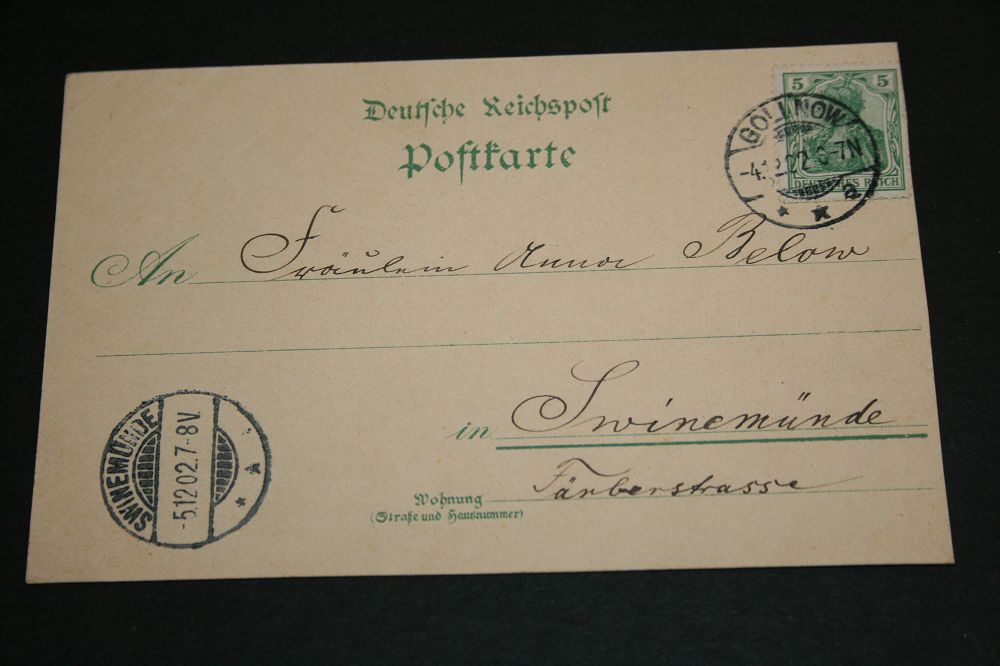 Deutsche Reichspost
Postkarte
5 5
DEUTSCHES REICH
GOLLNOW
-4.12.02.6-7N
a
An Fräulein Anna Below
in Swinemünde
Wohnung Färberstrasse
(Straße und Hausnummer)
SWINEMÜNDE
-5.12 02.7-8V.